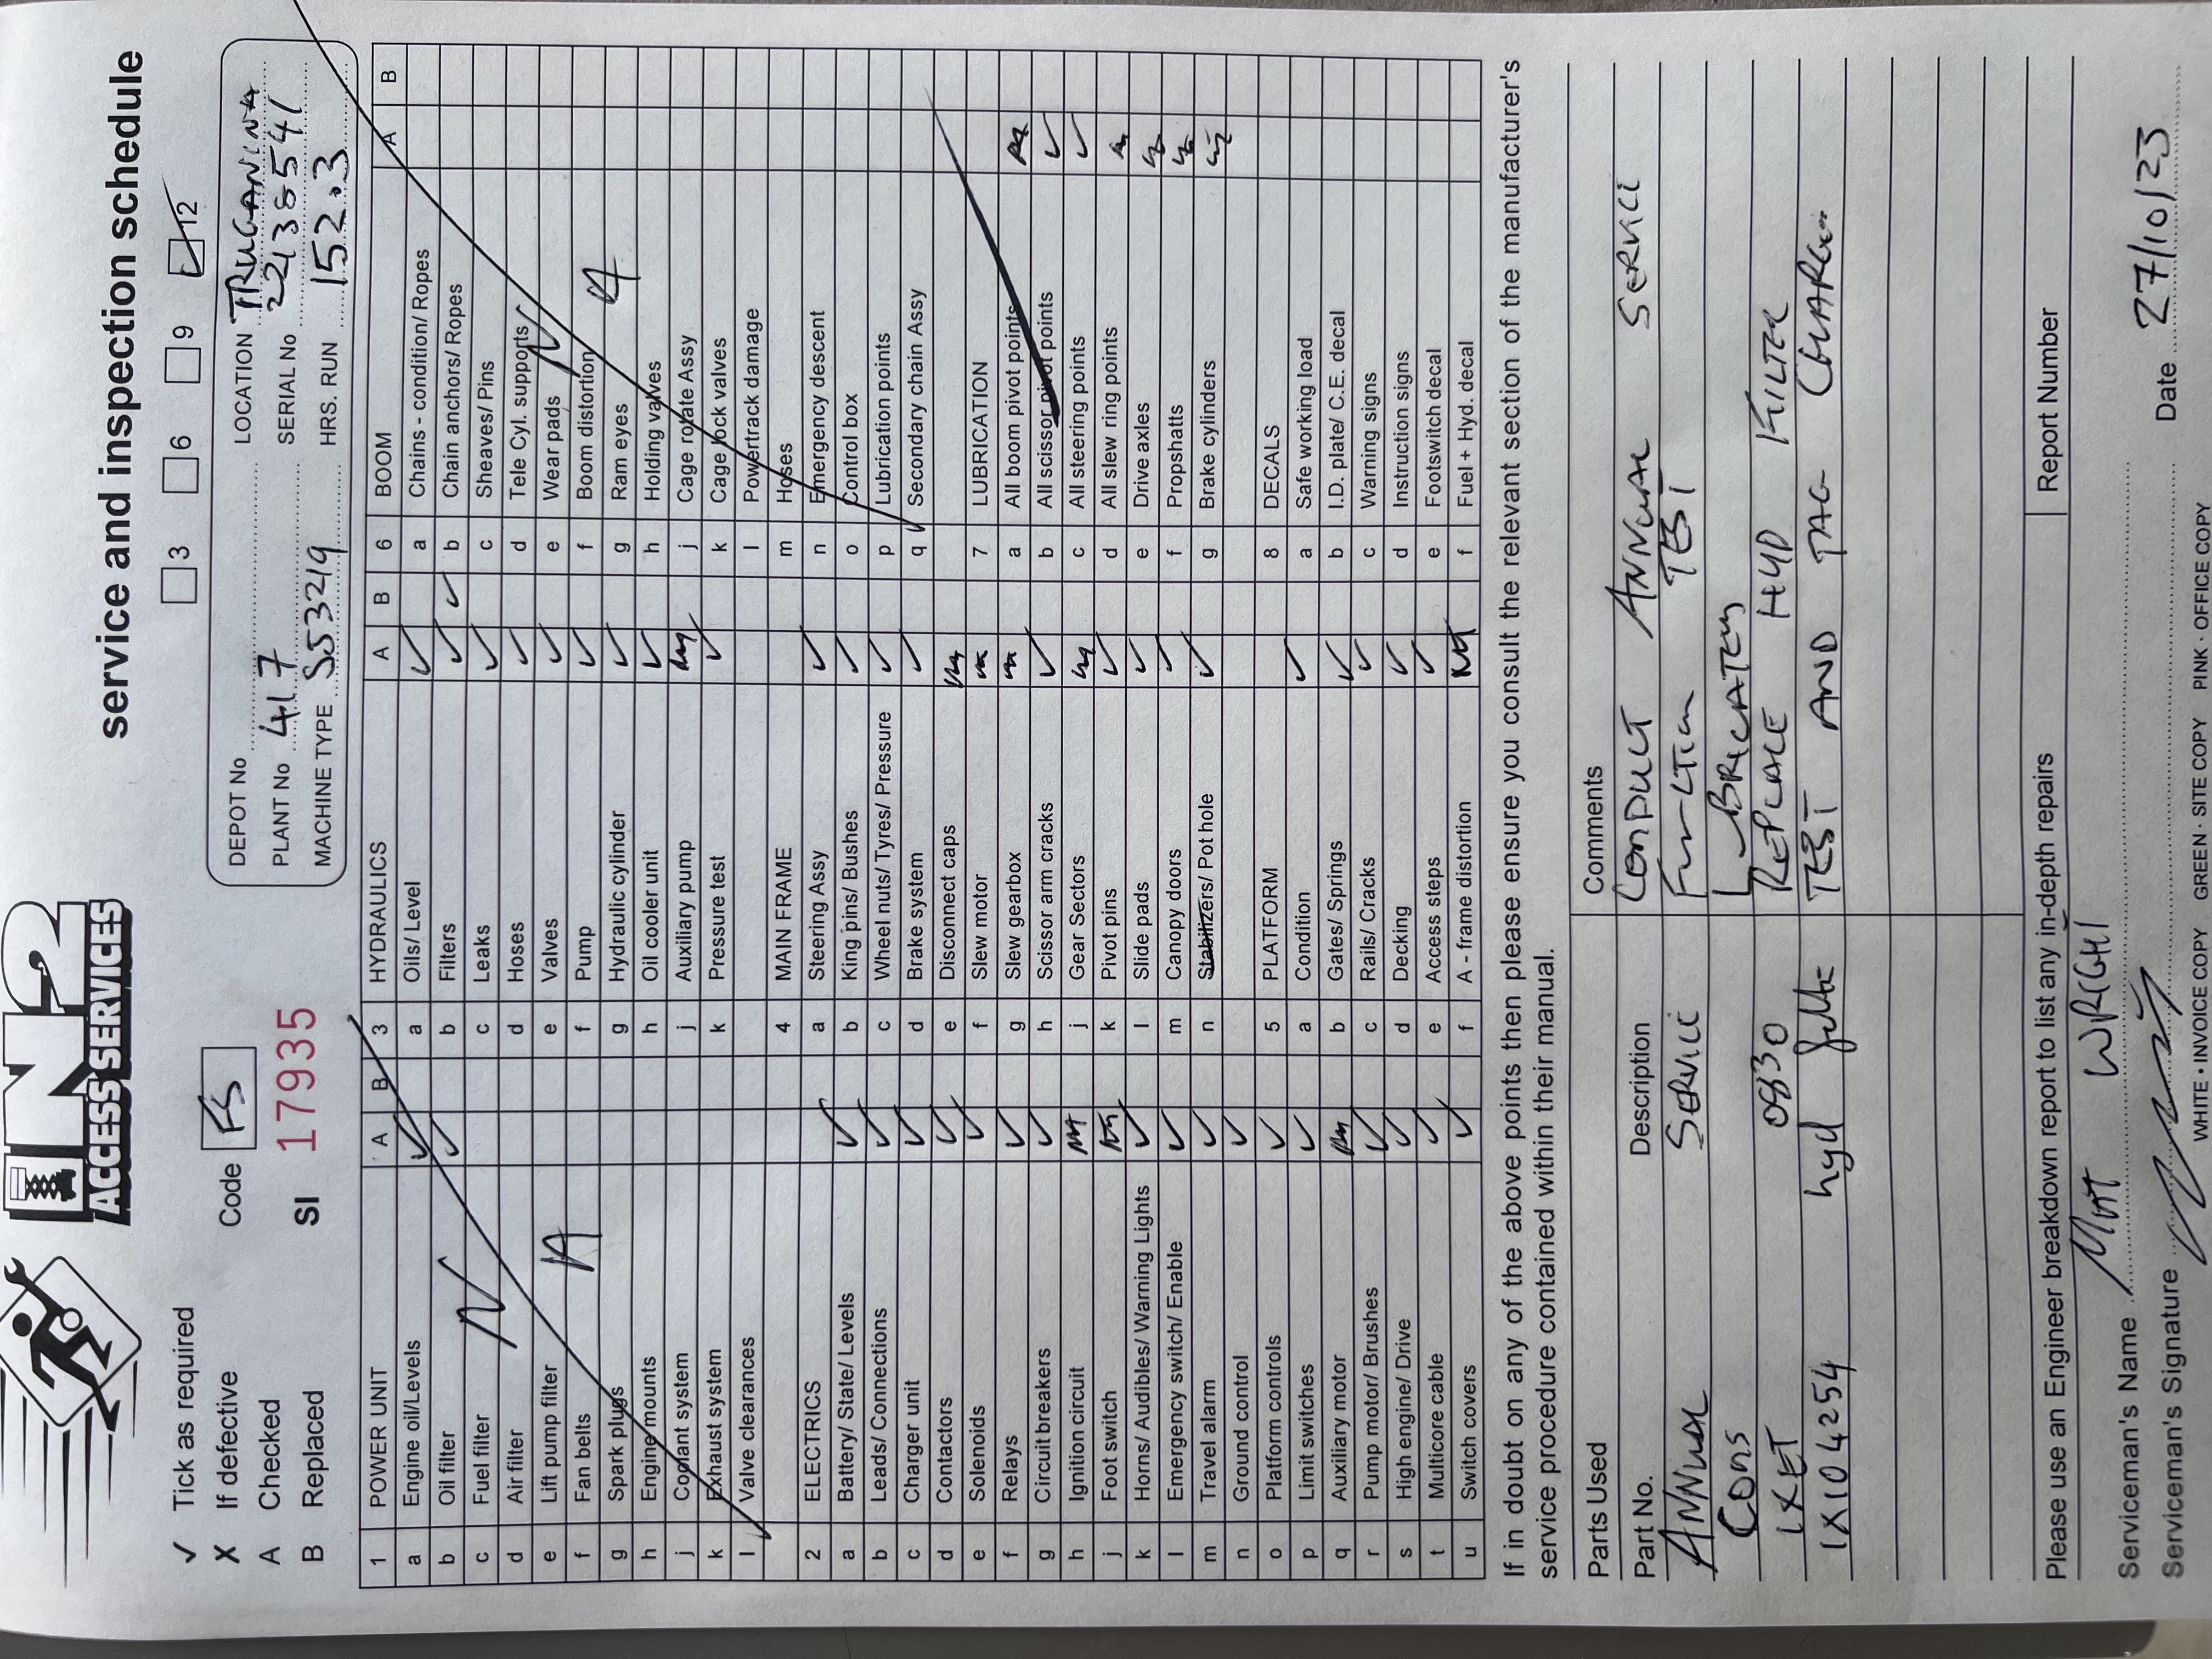 IN2
ACCESS SERVICES
service and inspection schedule
✓ Tick as required
X If defective
A Checked
B Replaced
Code FS
SI 17935
3 6 9 ✓ 12
DEPOT No
PLANT No 417
MACHINE TYPE SJ3219
LOCATION TRUGANINA
SERIAL No
HRS. RUN 152.3
1 POWER UNIT A B
a Engine oil/Levels ✓
b Oil filter ✓
c Fuel filter
d Air filter
e Lift pump filter
f Fan belts
g Spark plugs
h Engine mounts
j Coolant system
k Exhaust system
l Valve clearances
N A
2 ELECTRICS
a Battery/ State/ Levels ✓
b Leads/ Connections ✓
c Charger unit ✓
d Contactors ✓
e Solenoids ✓
f Relays ✓
g Circuit breakers ✓
h Ignition circuit NA
j Foot switch NA
k Horns/ Audibles/ Warning Lights ✓
l Emergency switch/ Enable ✓
m Travel alarm ✓
n Ground control ✓
o Platform controls ✓
p Limit switches ✓
q Auxiliary motor NA
r Pump motor/ Brushes ✓
s High engine/ Drive ✓
t Multicore cable ✓
u Switch covers ✓
3 HYDRAULICS A B
a Oils/ Level ✓
b Filters ✓ ✓
c Leaks ✓
d Hoses ✓
e Valves ✓
f Pump ✓
g Hydraulic cylinder ✓
h Oil cooler unit ✓
j Auxiliary pump NA
k Pressure test ✓
4 MAIN FRAME
a Steering Assy ✓
b King pins/ Bushes ✓
c Wheel nuts/ Tyres/ Pressure ✓
d Brake system ✓
e Disconnect caps NA
f Slew motor NA
g Slew gearbox NA
h Scissor arm cracks ✓
j Gear Sectors NA
k Pivot pins ✓
l Slide pads ✓
m Canopy doors ✓
n Stabilizers/ Pot hole ✓
5 PLATFORM
a Condition ✓
b Gates/ Springs ✓
c Rails/ Cracks ✓
d Decking ✓
e Access steps ✓
f A - frame distortion NA
6 BOOM A B
a Chains - condition/ Ropes
b Chain anchors/ Ropes
c Sheaves/ Pins
d Tele Cyl. supports
e Wear pads
f Boom distortion
g Ram eyes
h Holding valves
j Cage rotate Assy
k Cage lock valves
l Powertrack damage
m Hoses
n Emergency descent
o Control box
p Lubrication points
q Secondary chain Assy
N A
7 LUBRICATION
a All boom pivot points NA
b All scissor pivot points ✓
c All steering points ✓
d All slew ring points NA
e Drive axles NA
f Propshatts NA
g Brake cylinders NA
8 DECALS
a Safe working load
b I.D. plate/ C.E. decal
c Warning signs
d Instruction signs
e Footswitch decal
f Fuel + Hyd. decal
If in doubt on any of the above points then please ensure you consult the relevant section of the manufacturer's
service procedure contained within their manual.
Parts Used
Part No. Description
ANNUAL SERVICE
CONS
1X ET 0830
1X104254 hyd filter
Comments
CONDUCT ANNUAL SERVICE
FUNCTION TEST
LUBRICATION
REPLACE HYD FILTER
TEST AND TAG CHARGER
Please use an Engineer breakdown report to list any in-depth repairs
Report Number
Serviceman's Name MATT WRIGHT
Serviceman's Signature
Date 27/10/23
WHITE · INVOICE COPY GREEN · SITE COPY PINK · OFFICE COPY